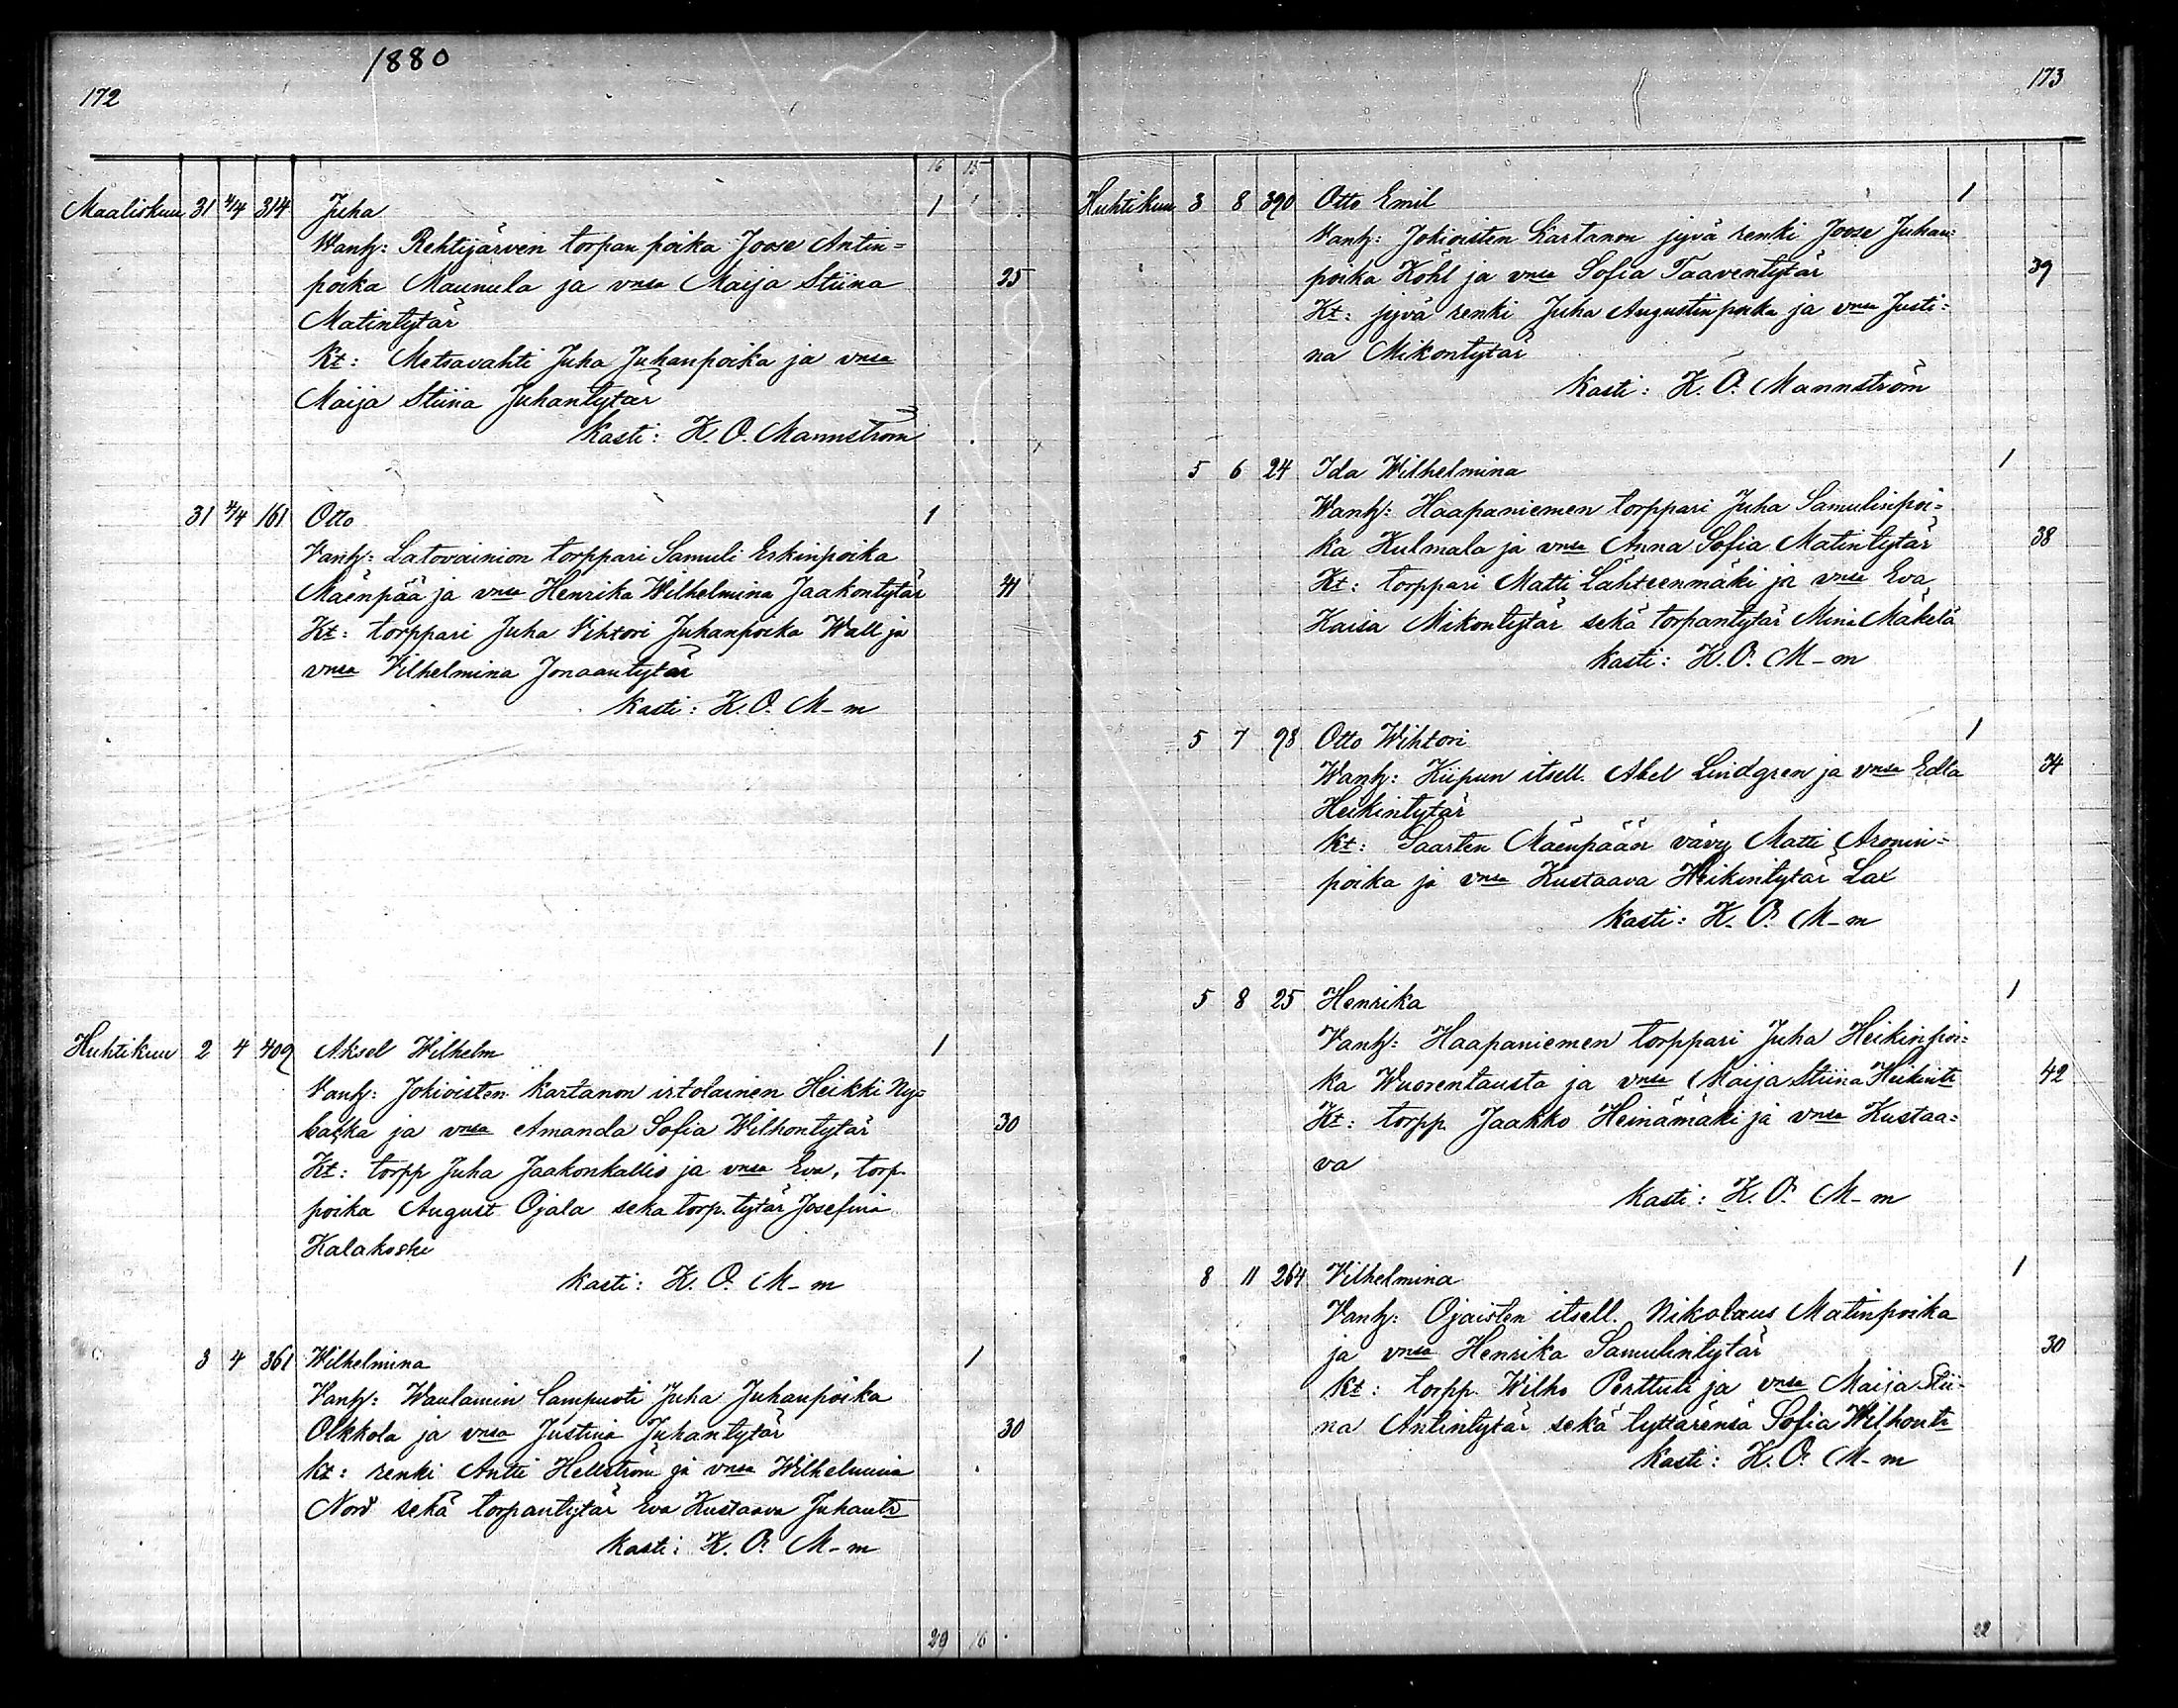 1880
172
16 15
Maaliskuu 31 4/4 314 Juha 1
Wanh: Rehtijärven torpan poika Joose Antin=
poika Maunula ja vnsa Maija Stiina 35
Matintytär
Kt: Metsavahti Juha Juhanpoika ja vnsa
Maija Stiina Juhantytär
Kasti: K. O. Mannström
31 4/4 161 Otto 1
Vanh: Latovainion torppari Samuli Eskinpoika
Mäenpää ja vnsa Henrika Wilhelmina Jaakontytär 41
Kt: torppari Juha Vihtori Juhanpoika Wall ja
vnsa Vilhelmina Jonaantytär
Kasti: K. O. M-m
Huhtikuu 2 4 409 Aksel Wilhelm 1
Vanh: Jokioisten kartanon irtolainen Heikki Ny=
backa ja vnsa Amanda Sofia Wilhontytär 30
Kt: torpp Juha Jaakonkallio ja vnsa Eva, torp.
poika August Ojala seka torp. tytär Josefina
Kalakoski
Kasti: K. O. M-m
3 4 361 Wilhelmina 1
Vanh: Waulamin lampuoti Juha Juhanpoika
Olkkola ja vnsa Justina Juhantytär 30
Kt: renki Antti Hellström ja vnsa Wilhelmina
Nord sekä torpantytär Eva Kustaava Juhantr
Kasti: K. O. M-m
29 16
173
Huhtikuu 3 8 390 Otto Emil 1
Vanh: Jokioisten Kartanon jyvä renki Joose Juhan=
poika Köhl ja vnsa Sofia Taaventytär 39
Kt: jyvä renki Juha Augustinpoika ja vnsa Justi=
na Mikontytär
Kasti: K. O. Mannström
5 6 24 Ida Wilhelmina 1
Wanh: Haapaniemen torppari Juha Samulinpoi=
ka Kulmala ja vnsa Anna Sofia Matintytär 38
Kt: torppari Matti Lähteenmäki ja vnsa Eva
Kaisa Mikontytär sekä torpantytär Mina Mäkelä
Kasti: K. O. M-m
5 7 98 Otto Wihtori 1
Wanh: Kiipun itsell. Abel Lindgren ja vnsa Edla 34
Heikintytär
Kt: Saarten Mäenpään vävy Matti Aronin=
poika ja vnsa Kustaava Heikintytär Lax
Kasti: K. O. M-m
5 8 25 Henrika 1
Vanh: Haapaniemen torppari Juha Heikinpoi=
ka Wuorentausta ja vnsa Maija Stiina Heikintr 42
Kt: torpp. Jaakko Heinämäki ja vnsa Kustaa=
va
Kasti: K. O. M-m
8 11 264 Vilhelmina 1
Vanh: Ojaisten itsell. Nikolaus Matinpoika
ja vnsa Henrika Samulintytär 30
Kt: torpp. Wilho Perttuli ja vnsa Maija Stii-
na Antintytär sekä tyttärensä Sofia Wilhontr
Kasti: K. O. M-m
22